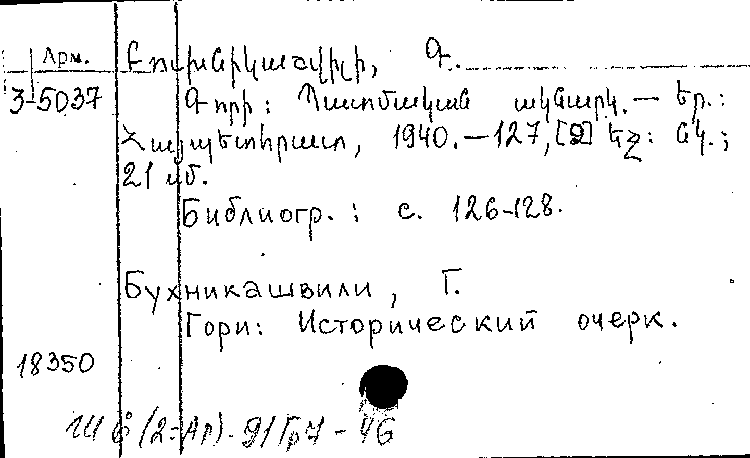 Арм.
Բուխնիկաշվիլի, Գ.
3-5037
Գորի: Պատմական ակնարկ. — Եր.:
Հայպետհրատ, 1940. — 127, [2] եջ: նկ.;
21 սմ.
Библиогр.: с. 126-128.
Бухникашвили, Г.
Гори: Исторический очерк.
18350
(2=Ар).91Гр7 - 46